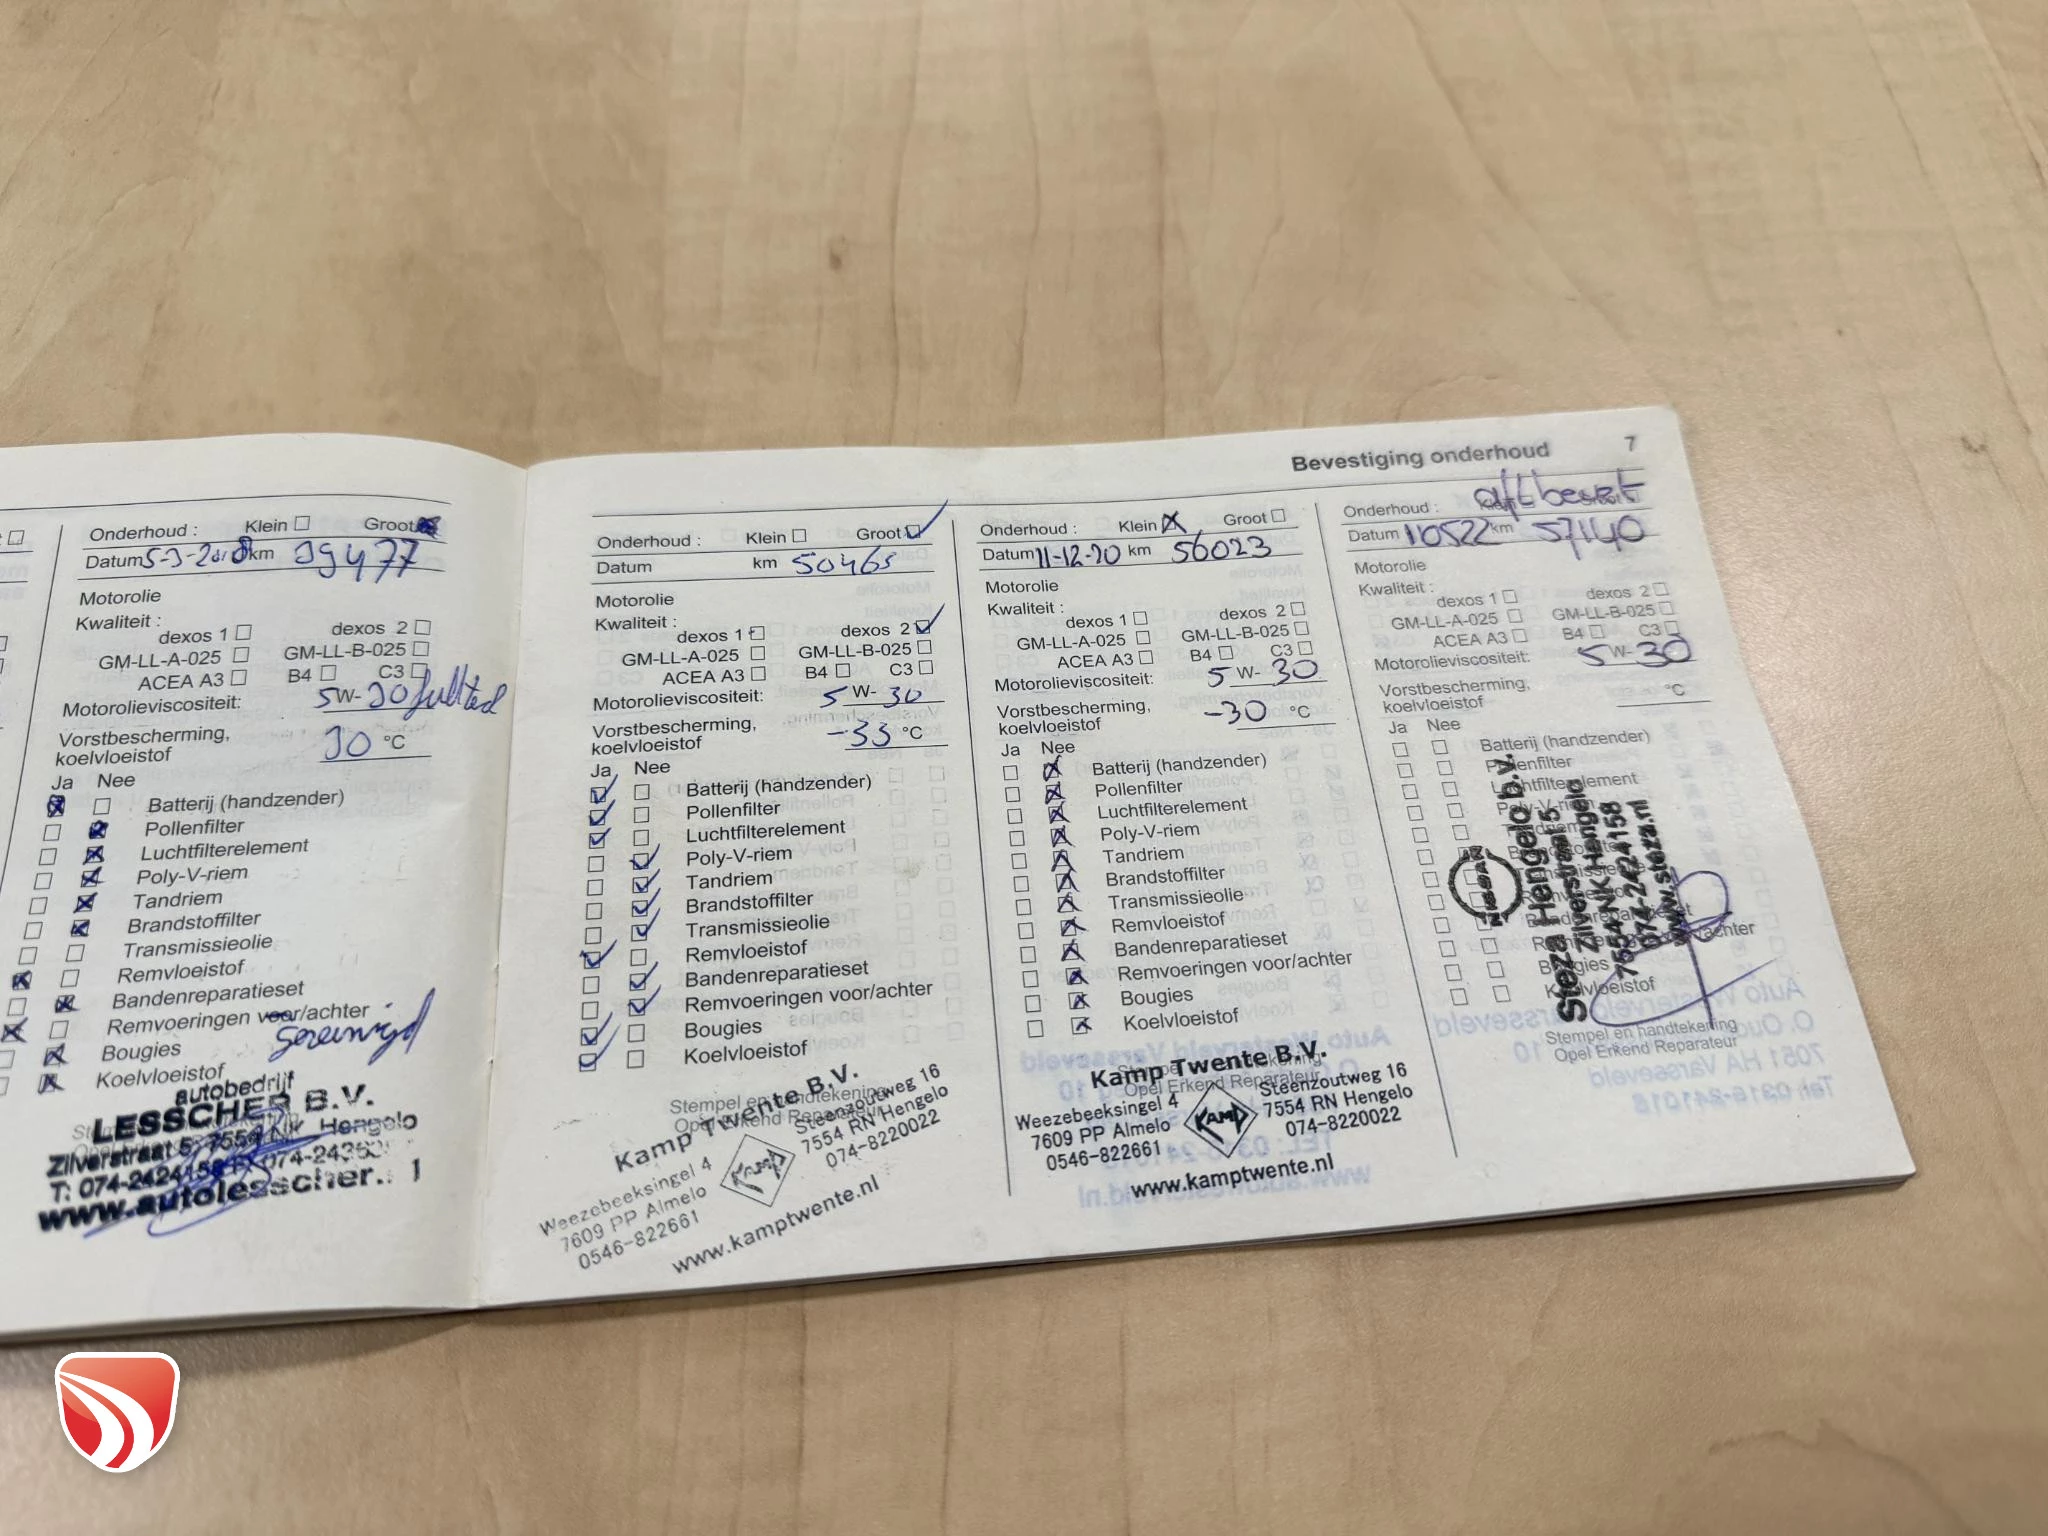 Bevestiging onderhoud 7
Onderhoud : Klein Groot
Datum 5-3-2018 km 39477
Motorolie
Kwaliteit :
dexos 1 dexos 2
GM-LL-A-025 GM-LL-B-025
ACEA A3 B4 C3
Motorolieviscositeit: 5 W- 30
Vorstbescherming,
koelvloeistof 30 °C
Ja Nee
Batterij (handzender)
Pollenfilter
Luchtfilterelement
Poly-V-riem
Tandriem
Brandstoffilter
Transmissieolie
Remvloeistof
Bandenreparatieset
Remvoeringen voor/achter
gereinigd
Bougies
Koelvloeistof
autobedrijf
LESSCHER B.V.
Zilverstraat 5, 7554 NK Hengelo
T: 074-2424158
www.autolesscher.
Onderhoud : Klein Groot
Datum km 50465
Motorolie
Kwaliteit :
dexos 1 dexos 2
GM-LL-A-025 GM-LL-B-025
ACEA A3 B4 C3
Motorolieviscositeit: 5 W- 30
Vorstbescherming,
koelvloeistof -33 °C
Ja Nee
Batterij (handzender)
Pollenfilter
Luchtfilterelement
Poly-V-riem
Tandriem
Brandstoffilter
Transmissieolie
Remvloeistof
Bandenreparatieset
Remvoeringen voor/achter
Bougies
Koelvloeistof
Stempel en handtekening
Opel Erkend Reparateur
Kamp Twente B.V.
Weezebeeksingel 4
7609 PP Almelo
0546-822661
KAMP
Steenzoutweg 16
7554 RN Hengelo
074-8220022
www.kamptwente.nl
Onderhoud : Klein Groot
Datum 11-12-20 km 56023
Motorolie
Kwaliteit :
dexos 1 dexos 2
GM-LL-A-025 GM-LL-B-025
ACEA A3 B4 C3
Motorolieviscositeit: 5 W- 30
Vorstbescherming,
koelvloeistof -30 °C
Ja Nee
Batterij (handzender)
Pollenfilter
Luchtfilterelement
Poly-V-riem
Tandriem
Brandstoffilter
Transmissieolie
Remvloeistof
Bandenreparatieset
Remvoeringen voor/achter
Bougies
Koelvloeistof
Stempel en handtekening
Opel Erkend Reparateur
Kamp Twente B.V.
Weezebeeksingel 4
7609 PP Almelo
0546-822661
KAMP
Steenzoutweg 16
7554 RN Hengelo
074-8220022
www.kamptwente.nl
Onderhoud : Klein Groot
Datum 110522 km 57140
Motorolie
Kwaliteit :
dexos 1 dexos 2
GM-LL-A-025 GM-LL-B-025
ACEA A3 B4 C3
Motorolieviscositeit: 5 W- 30
Vorstbescherming,
koelvloeistof °C
Ja Nee
Batterij (handzender)
Pollenfilter
Luchtfilterelement
Poly-V-riem
Tandriem
Brandstoffilter
Transmissieolie
Remvloeistof
Bandenreparatieset
Remvoeringen voor/achter
Bougies
Koelvloeistof
NISSAN
Steza Hengelo b.v.
Zilverstraat 5
7554 NK Hengelo
074-2424158
www.steza.nl
Stempel en handtekening
Opel Erkend Reparateur